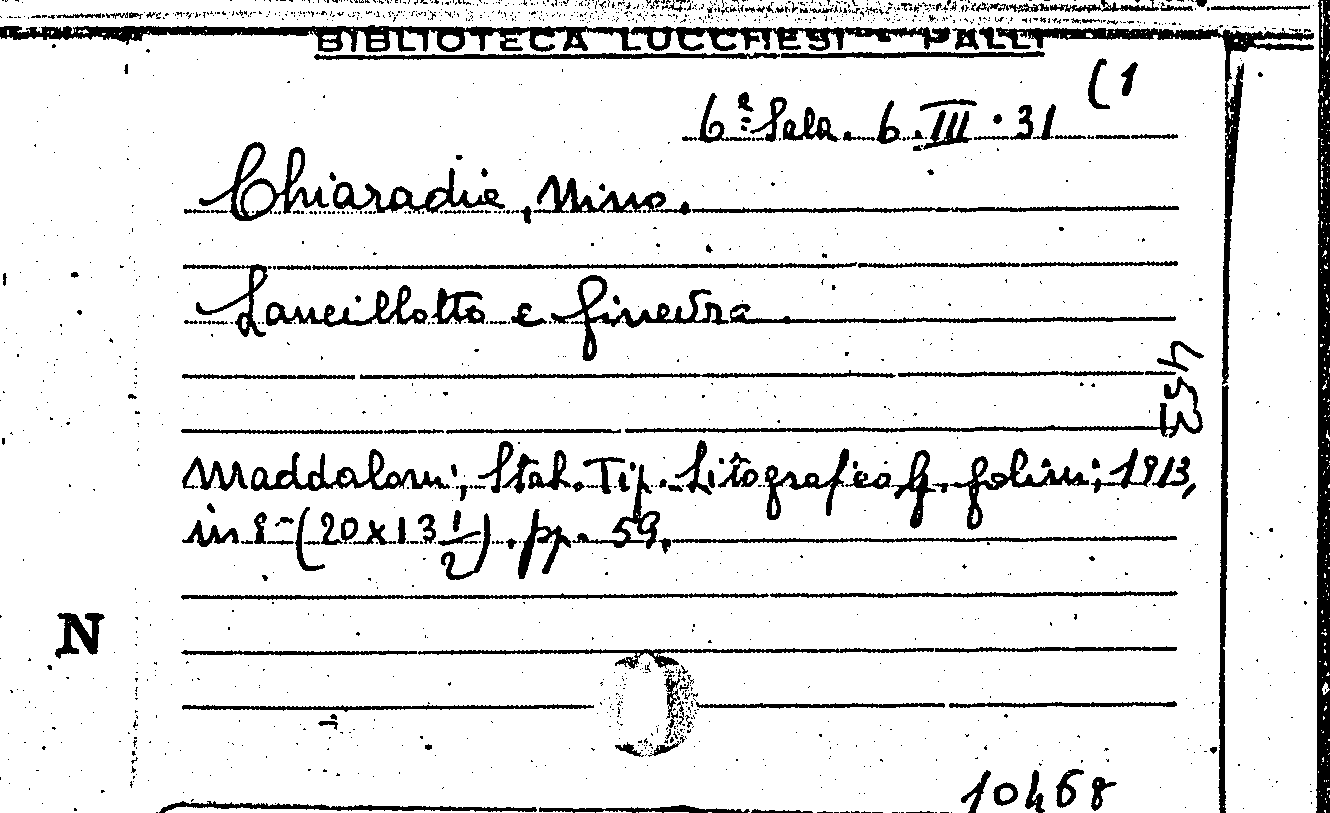 BIBLIOTECA LUCCHESI - PALLI
6ª Sala. 6. III. 31 (1
Chiaradia, Nino.
Lancillotto e Ginevra.
Maddaloni, Stab. Tip. Litografico G. Golini, 1913,
in 8° (20 x 13 1/2). pp. 59.
N
10468